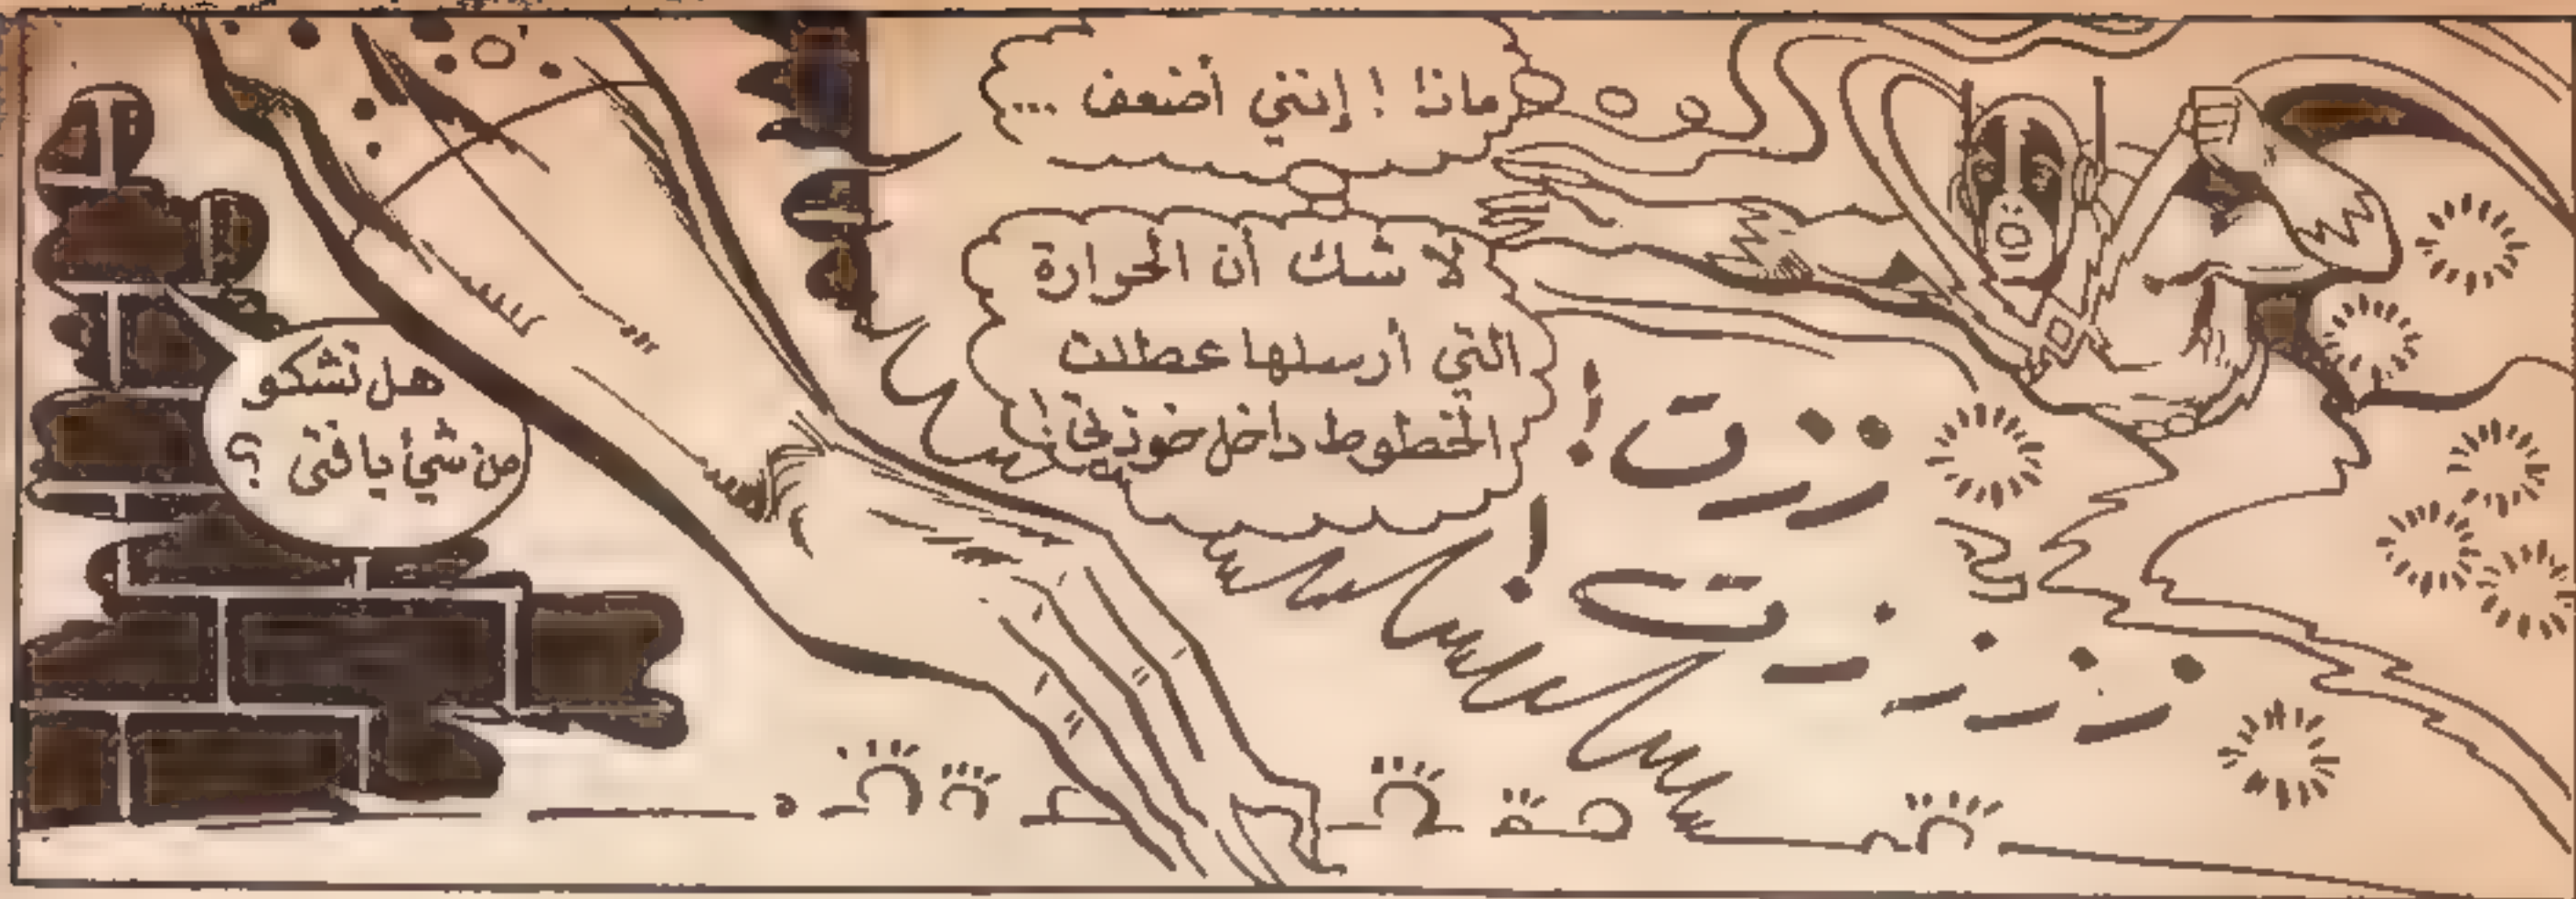 ماذا ! إنني أضعف ...
لا شك أن الحرارة
التي أرسلها عطلت
الخطوط داخل خوذتي !
ززت !
زززززت !
هل تشكو
من شيء يا فتى ؟